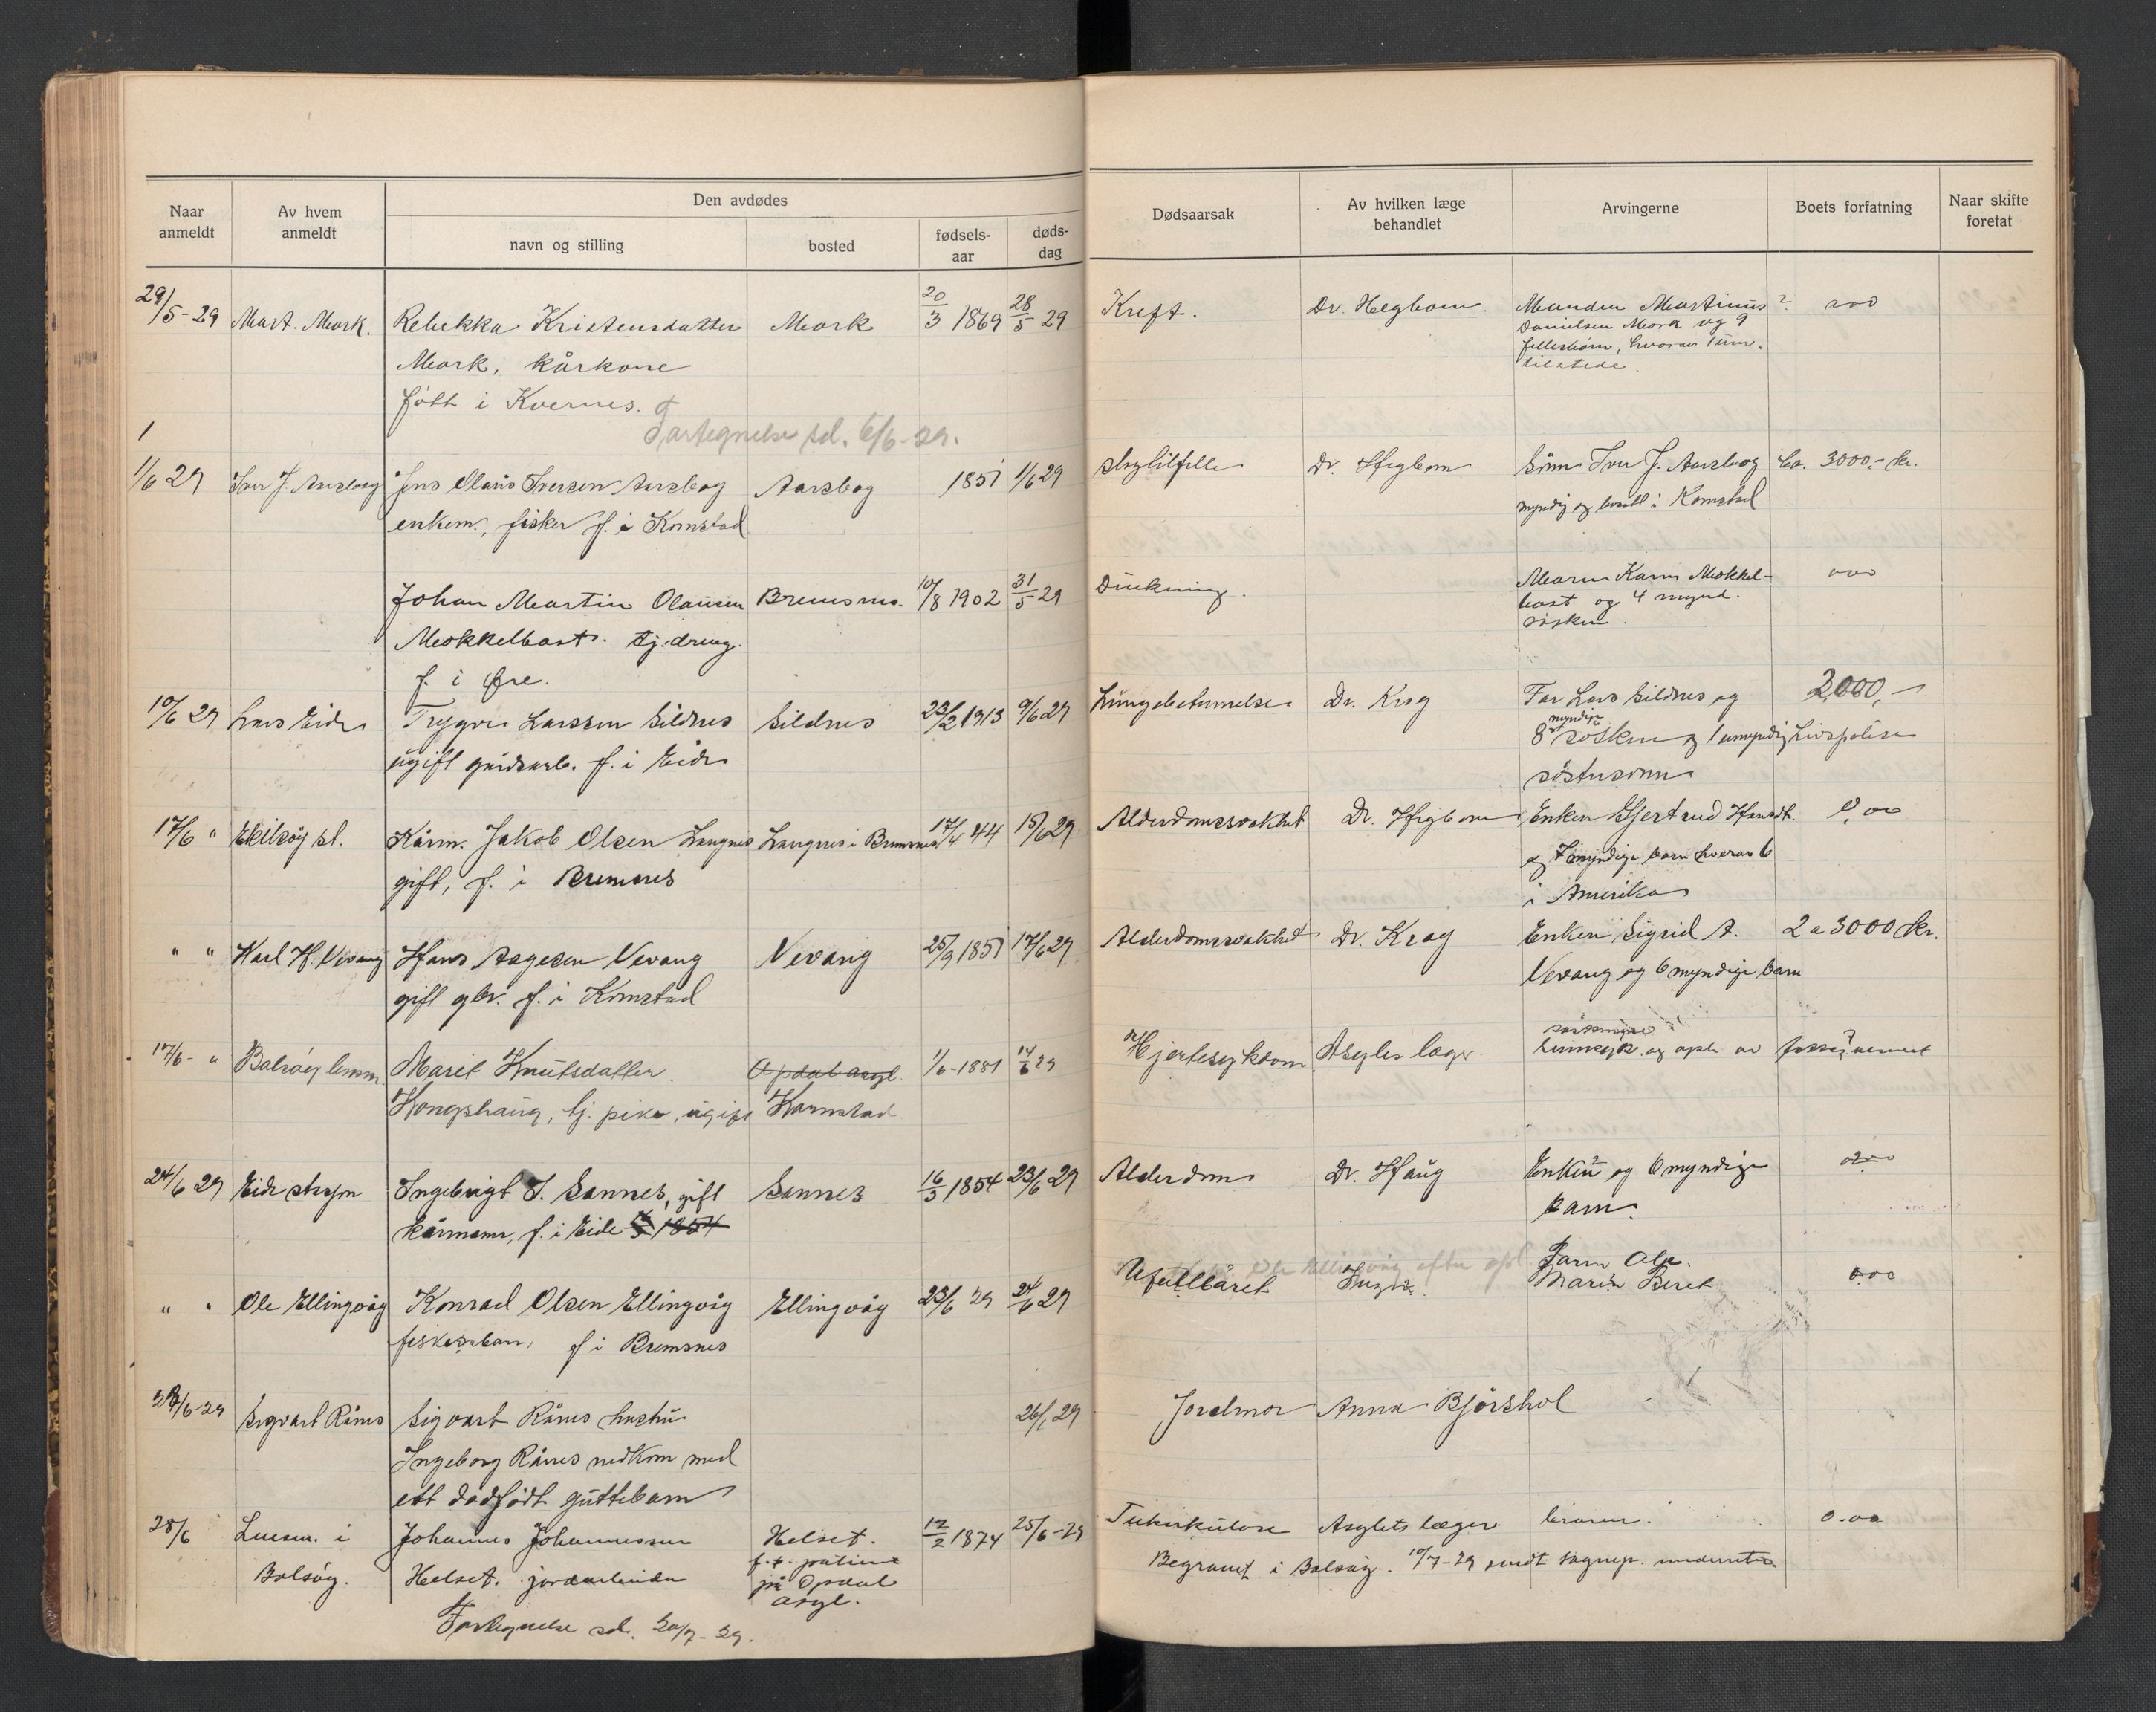 Naar anmeldt
Av hvem anmeldt
Den avdødes
navn og stilling
bosted
fødsels-aar
døds-dag
Dødsaarsak
Av hvilken læge behandlet
Arvingerne
Boets forfatning
Naar skifte foretat
29/5-29 Mart. Mork. Rebekka Kristensdatter Mork 20/3 1869 28/5 29 Kreft. Dr. Hegbom. Manden Martinus ? 0,00
Mork, kårkone Danielsen Mork og 9
født i Kvernes. fellesbørn, hvorav 1 um.
tilstede.
Fortegnelse sd. 6/6-29.
1
1/6 29 Iver J Aarsbog Jens Olaus Iversen Aarsbog Aarsbog 1851 1/6 29 Dr. Hegbom Sønn Iver J. Aarsbog ca. 3000,- kr.
enkem., fisker f. i Kornstad myndig og bosatt i Kornstad
Johan Martin Olausen Bremsnes. 10/8 1902 31/5 29 Drukning. 0,00
Mokkelbost. tj.dreng. og 4 mynd.
f. i Øre. søsken.
10/6 29 Lars Eide Trygve Larssen Sildnes Sildnes 23/2 1913 9/6 29 Lungebetennelse Dr. Krog Far Lars Sildnes og 2000,-
ugift gårdsarb. f. i Eide 8 myndige søsken og 1 umyndig Livspolise
søstersønn
17/6 " Ekilsøy st. Kårm. Jakob Olsen Langnes Langnes i Bremsnes 17/4 44 15/6 29 Alderdomssvakhet Dr. Hegbom Enken Gjertrud Hansdt. 0,00
gift, f. i Bremsnes og 7 myndige barn hverav 6
i Amerika
" " Karl H. Vevang Hans Aagesen Vevang Vevang 25/9 1851 17/6 29 Alderdomssvakhet Dr. Krog Enken Sigrid A. 2 a 3000 kr.
gift gbr. f. i Kornstad Vevang og 6 myndige barn
17/6- " Bolsøy lensm. Marit Knutsdatter Opdal asyl. 1/6-1881 14/6 29 Hjertesykdom Asylets læge.
Kongshaug, tj. pike, ugift Kornstad
24/6 29 Eide Ingebrigt I. Sannes, gift Sannes 16/3 1854 23/6 29 Alderdom Dr. Haug Enken og 6 myndige 0,00
kårmann, f. i Eide 1854 barn.
" " Ole Ellingvåg Konrad Olsen Ellingvåg Ellingvåg 23/6 29 24/6 29 Ufullbåret Ingen. 0,00
fiskersbarn, f i Bremsnes
Ole Ellingvåg efter
28/6-29 Sigvart Rånes Sigvart Rånes hustru 26/6 29 Jordmor Anna Bjørshol
Ingeborg Rånes nedkom med
ett dødfødt guttebarn
28/6 Lensm. i Johannes Johannessen Helset. 12/2 1874 25/6-29 Tuberkulose Asylets læger 0.00
Bolsøy. Helset. jordarbeider f.t. patient
på Opdal
asyl.
Begravet i Bolsøy. 10/7-29 sendt
Fortegnelse sd. 20/7-29.